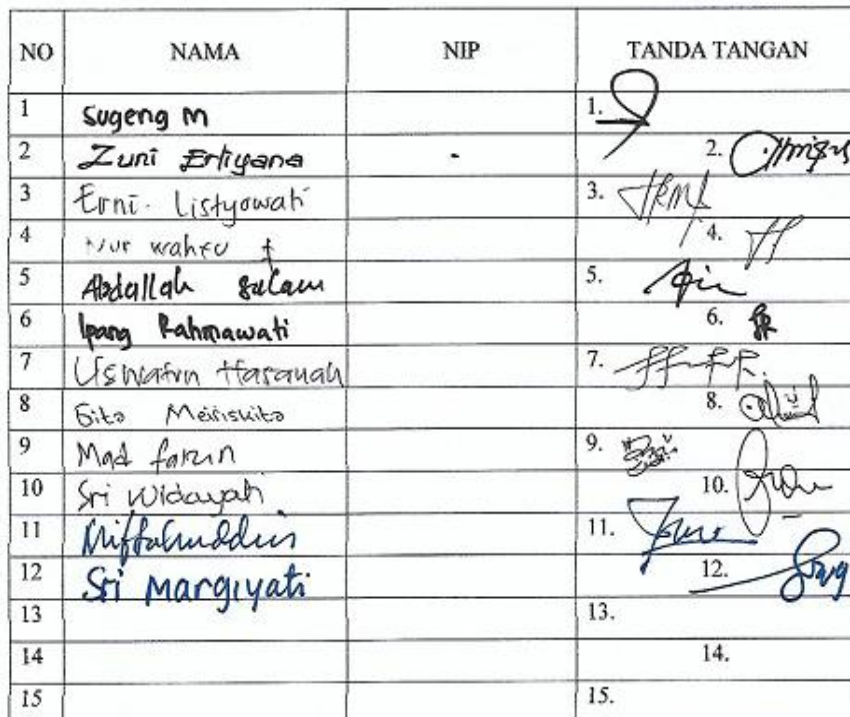 NO NAMA NIP TANDA TANGAN
1 Sugeng M 1.
2 Zuni Ertiyana 2.
3 Erni Listyowati 3.
4 Nur wahyu 4.
5 Abdallah Salam 5.
6 Ipang Rahmawati 6.
7 Uswatun Hasanah 7.
8 Gita Meiriskita 8.
9 Mad 9.
10 Sri Widayati 10.
11 Miftahuddin 11.
12 Sri Margiyati 12.
13 13.
14 14.
15 15.